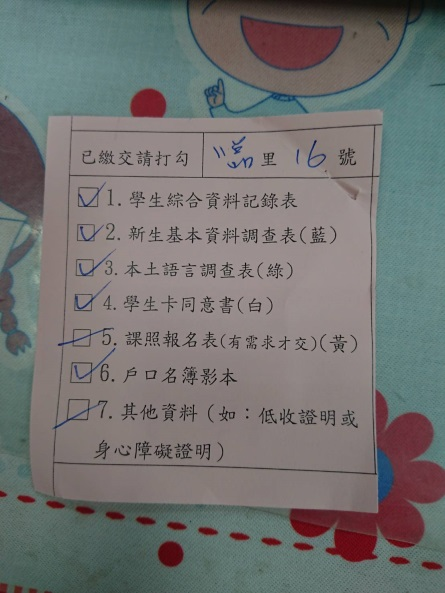 已繳交請打勾 里 16 號
☑ 1. 學生綜合資料記錄表
☑ 2. 新生基本資料調查表(藍)
☑ 3. 本土語言調查表(綠)
☑ 4. 學生卡同意書(白)
☐ 5. 課照報名表(有需求才交)(黃)
☑ 6. 戶口名簿影本
☐ 7. 其他資料(如：低收證明或
身心障礙證明)